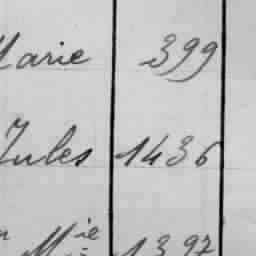 Marie 399
Jules 1436
Mie 1397